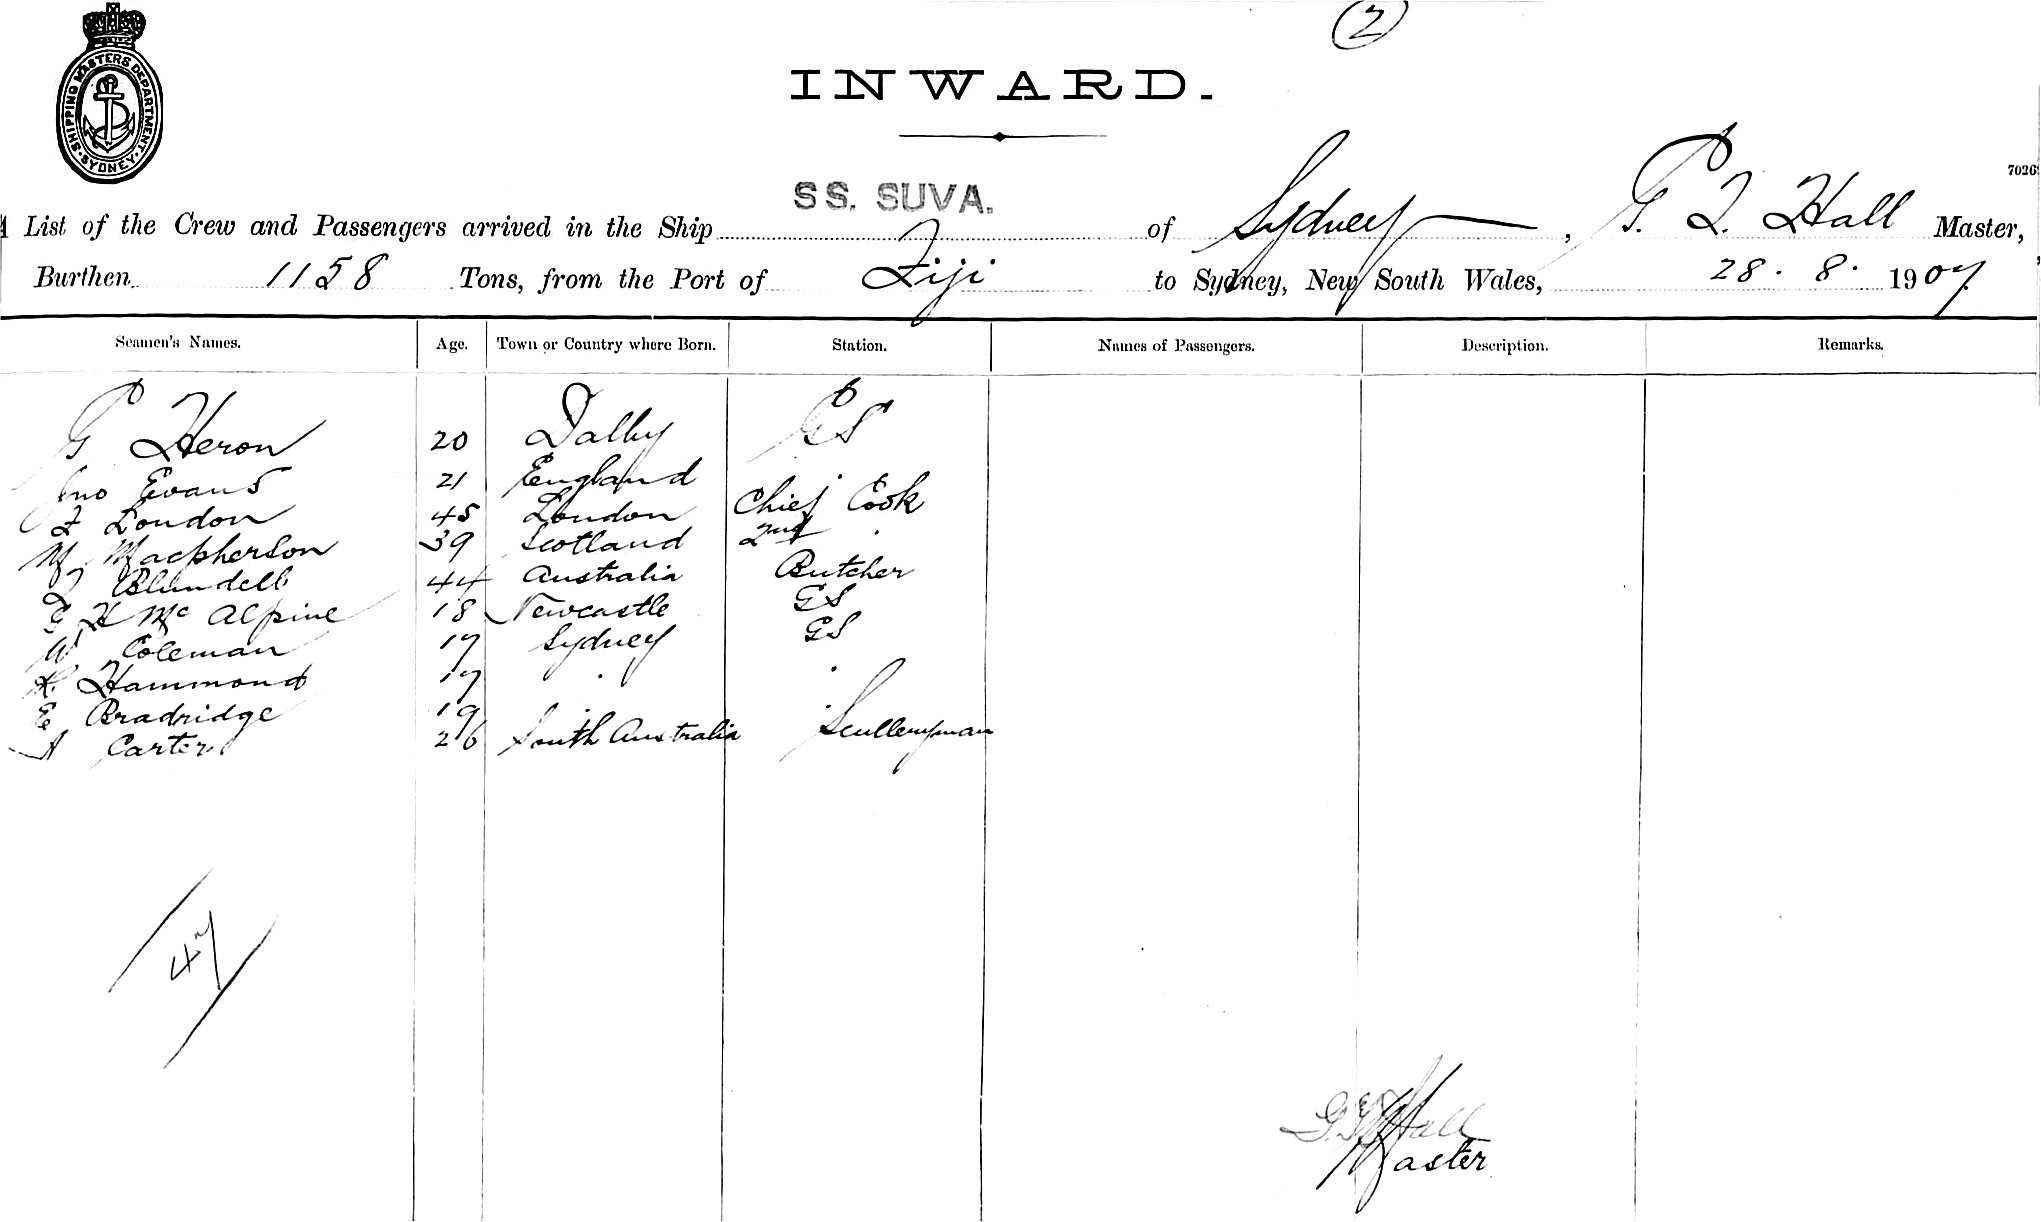 2
INWARD.
SHIPPING MASTERS DEPARTMENT. SYDNEY.
7026
SS. SUVA.
A List of the Crew and Passengers arrived in the Ship of Sydney, G. T. Hall Master,
Burthen 1158 Tons, from the Port of Fiji to Sydney, New South Wales, 28. 8. 1907.
Seamen's Names. Age. Town or Country where Born. Station. Names of Passengers. Description. Remarks.
G Heron 20 Dalby GS
Jno Evans 21 England "
F London 45 London Chief Cook
M Macpherson 39 Scotland 2nd "
J Blundell 44 Australia Butcher
E H McAlpine 18 Newcastle GS
W Coleman 17 Sydney GS
H Hammond 17 " "
E Bradridge 19 " "
A Carter 26 South Australia Sculleryman
47
Hall
Master